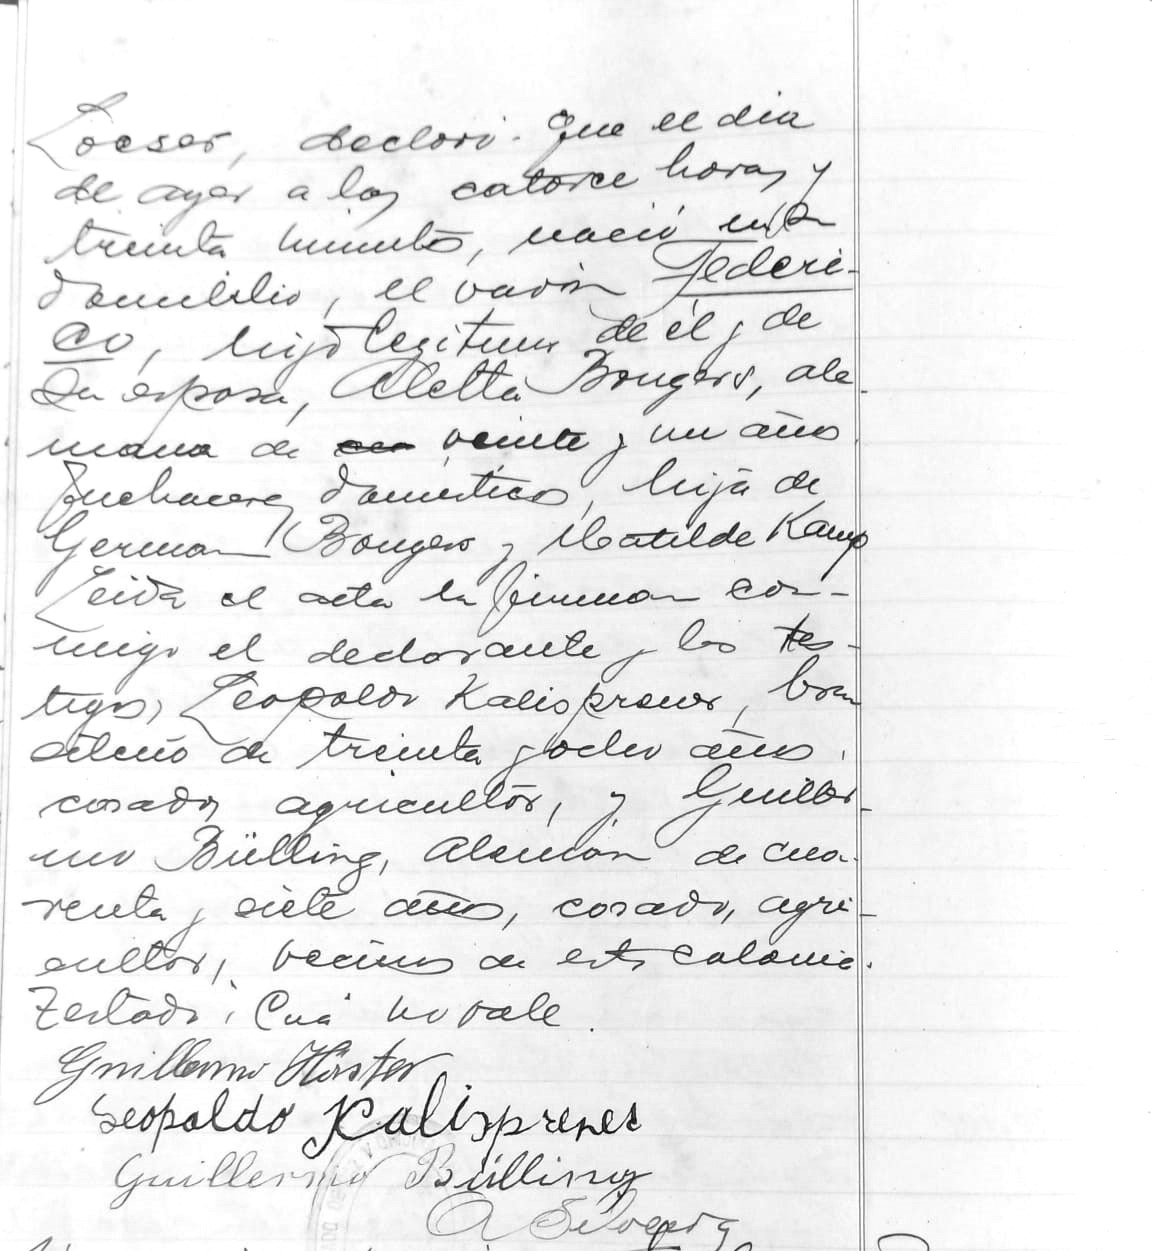 Loeser, declaró: Que el dia
de ayer a las catorce horas y
treinta minutos, nació en su
domicilio, el varón Federi-
co, hijo legitimo de él y de
su esposa, Aletta Bongers, ale-
mana de cua veinte y un años
quehaceres domesticos, hija de
German Bongers y Matilde Kamp
Leida el acta la firman con-
migo el declarante y los tes-
tigos, Leopoldo Kalisprener, bra
sileño de treinta y ocho años,
casado, agricultor, y Guiller-
mo Bülling, Alemán de cua-
renta y siete años, casado, agri-
cultor, vecinos de esta colonia.
Testado: Cua no vale.
Guillermo Hörster
Leopoldo Kalisprener
Guillermo Bülling